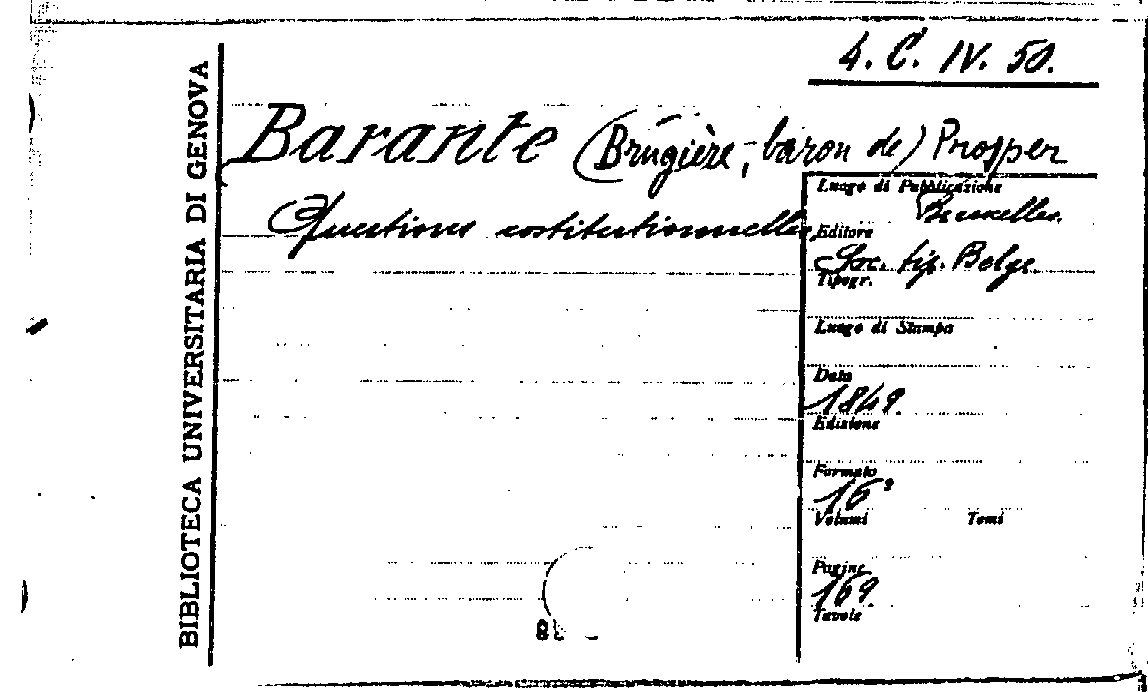 4. C. IV. 50.
BIBLIOTECA UNIVERSITARIA DI GENOVA
Barante (Brugière, baron de) Prosper
Questions costitutionnelles
Luogo di Pubblicazione
Bruxelles.
Editore
Soc. tip. Belge
Tipogr.
Luogo di Stampa
Data
1849.
Edizione
Formato
16°
Volumi Tomi
Pagine
169.
Tavole